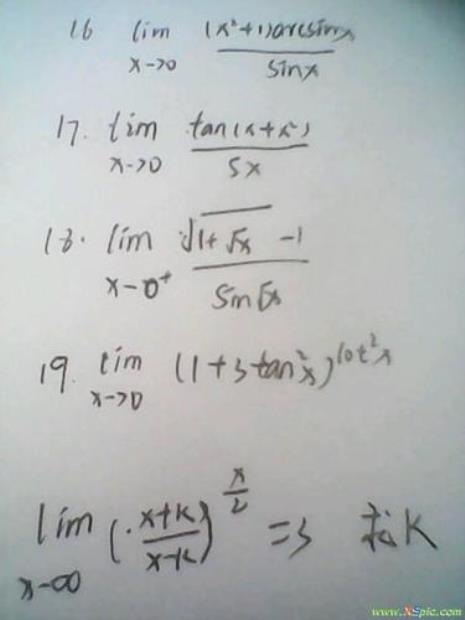 16 lim x->0 (x²+1)arcsinx / sinx
17. lim x->0 tan(x+x²) / 5x
18. lim x-0⁺ √(1+√x) -1 / sin√x
19. lim x->0 (1+3tan²x)^cot²x
lim x-∞ (x+k / x-k)^(x/2) =3 求K
www.XSpic.com